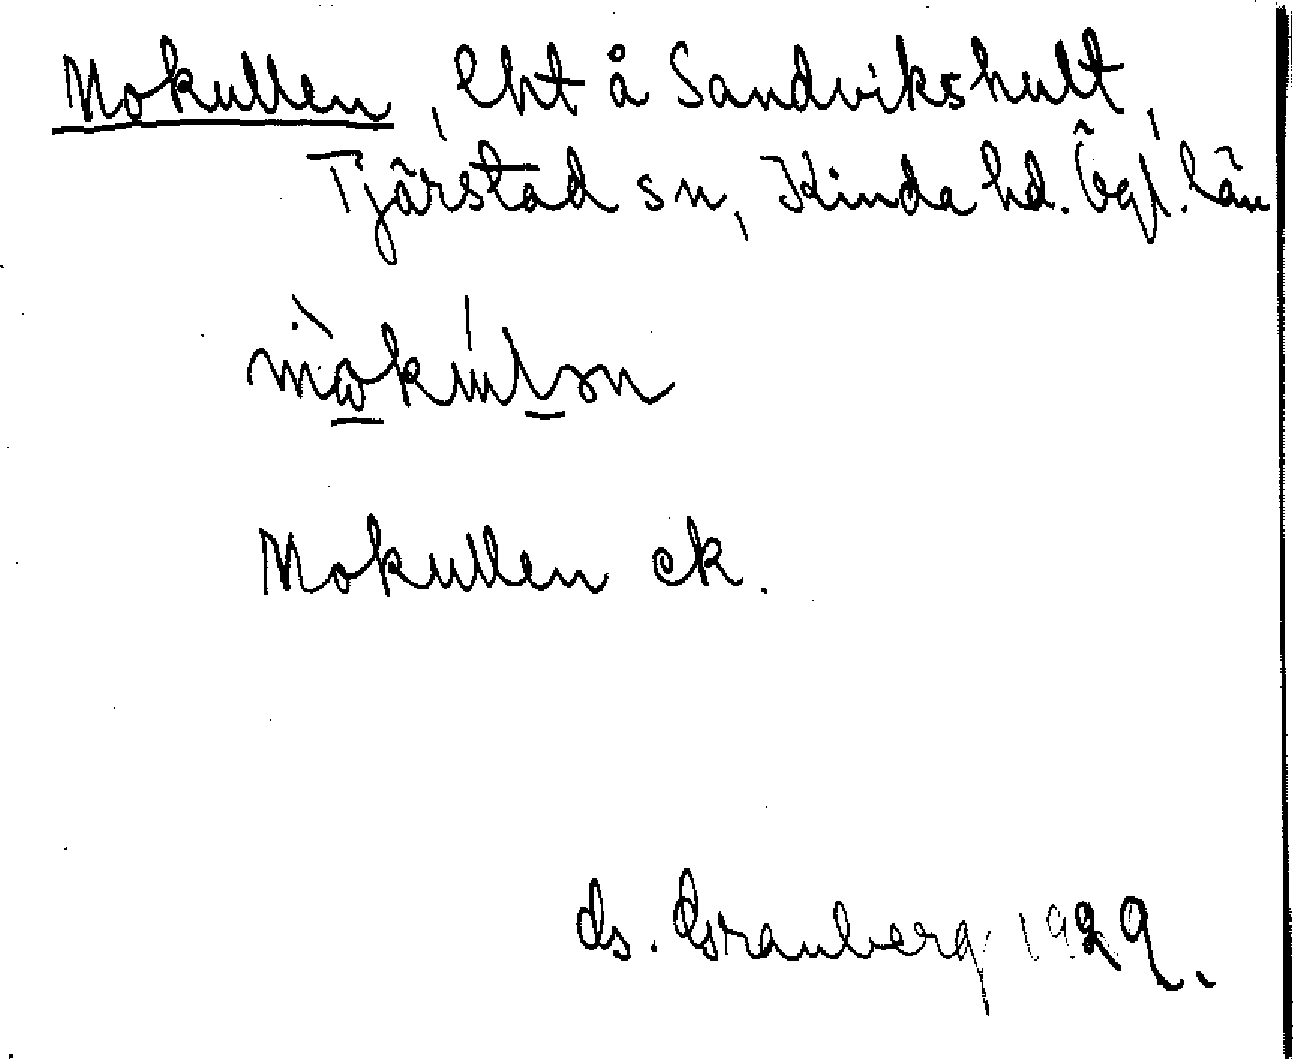 Mokullen, lht å Sandvikshult,
Tjärstad sn, Kinda hd. Ögl. län
Mokullen ek.
G. Granberg 1929.